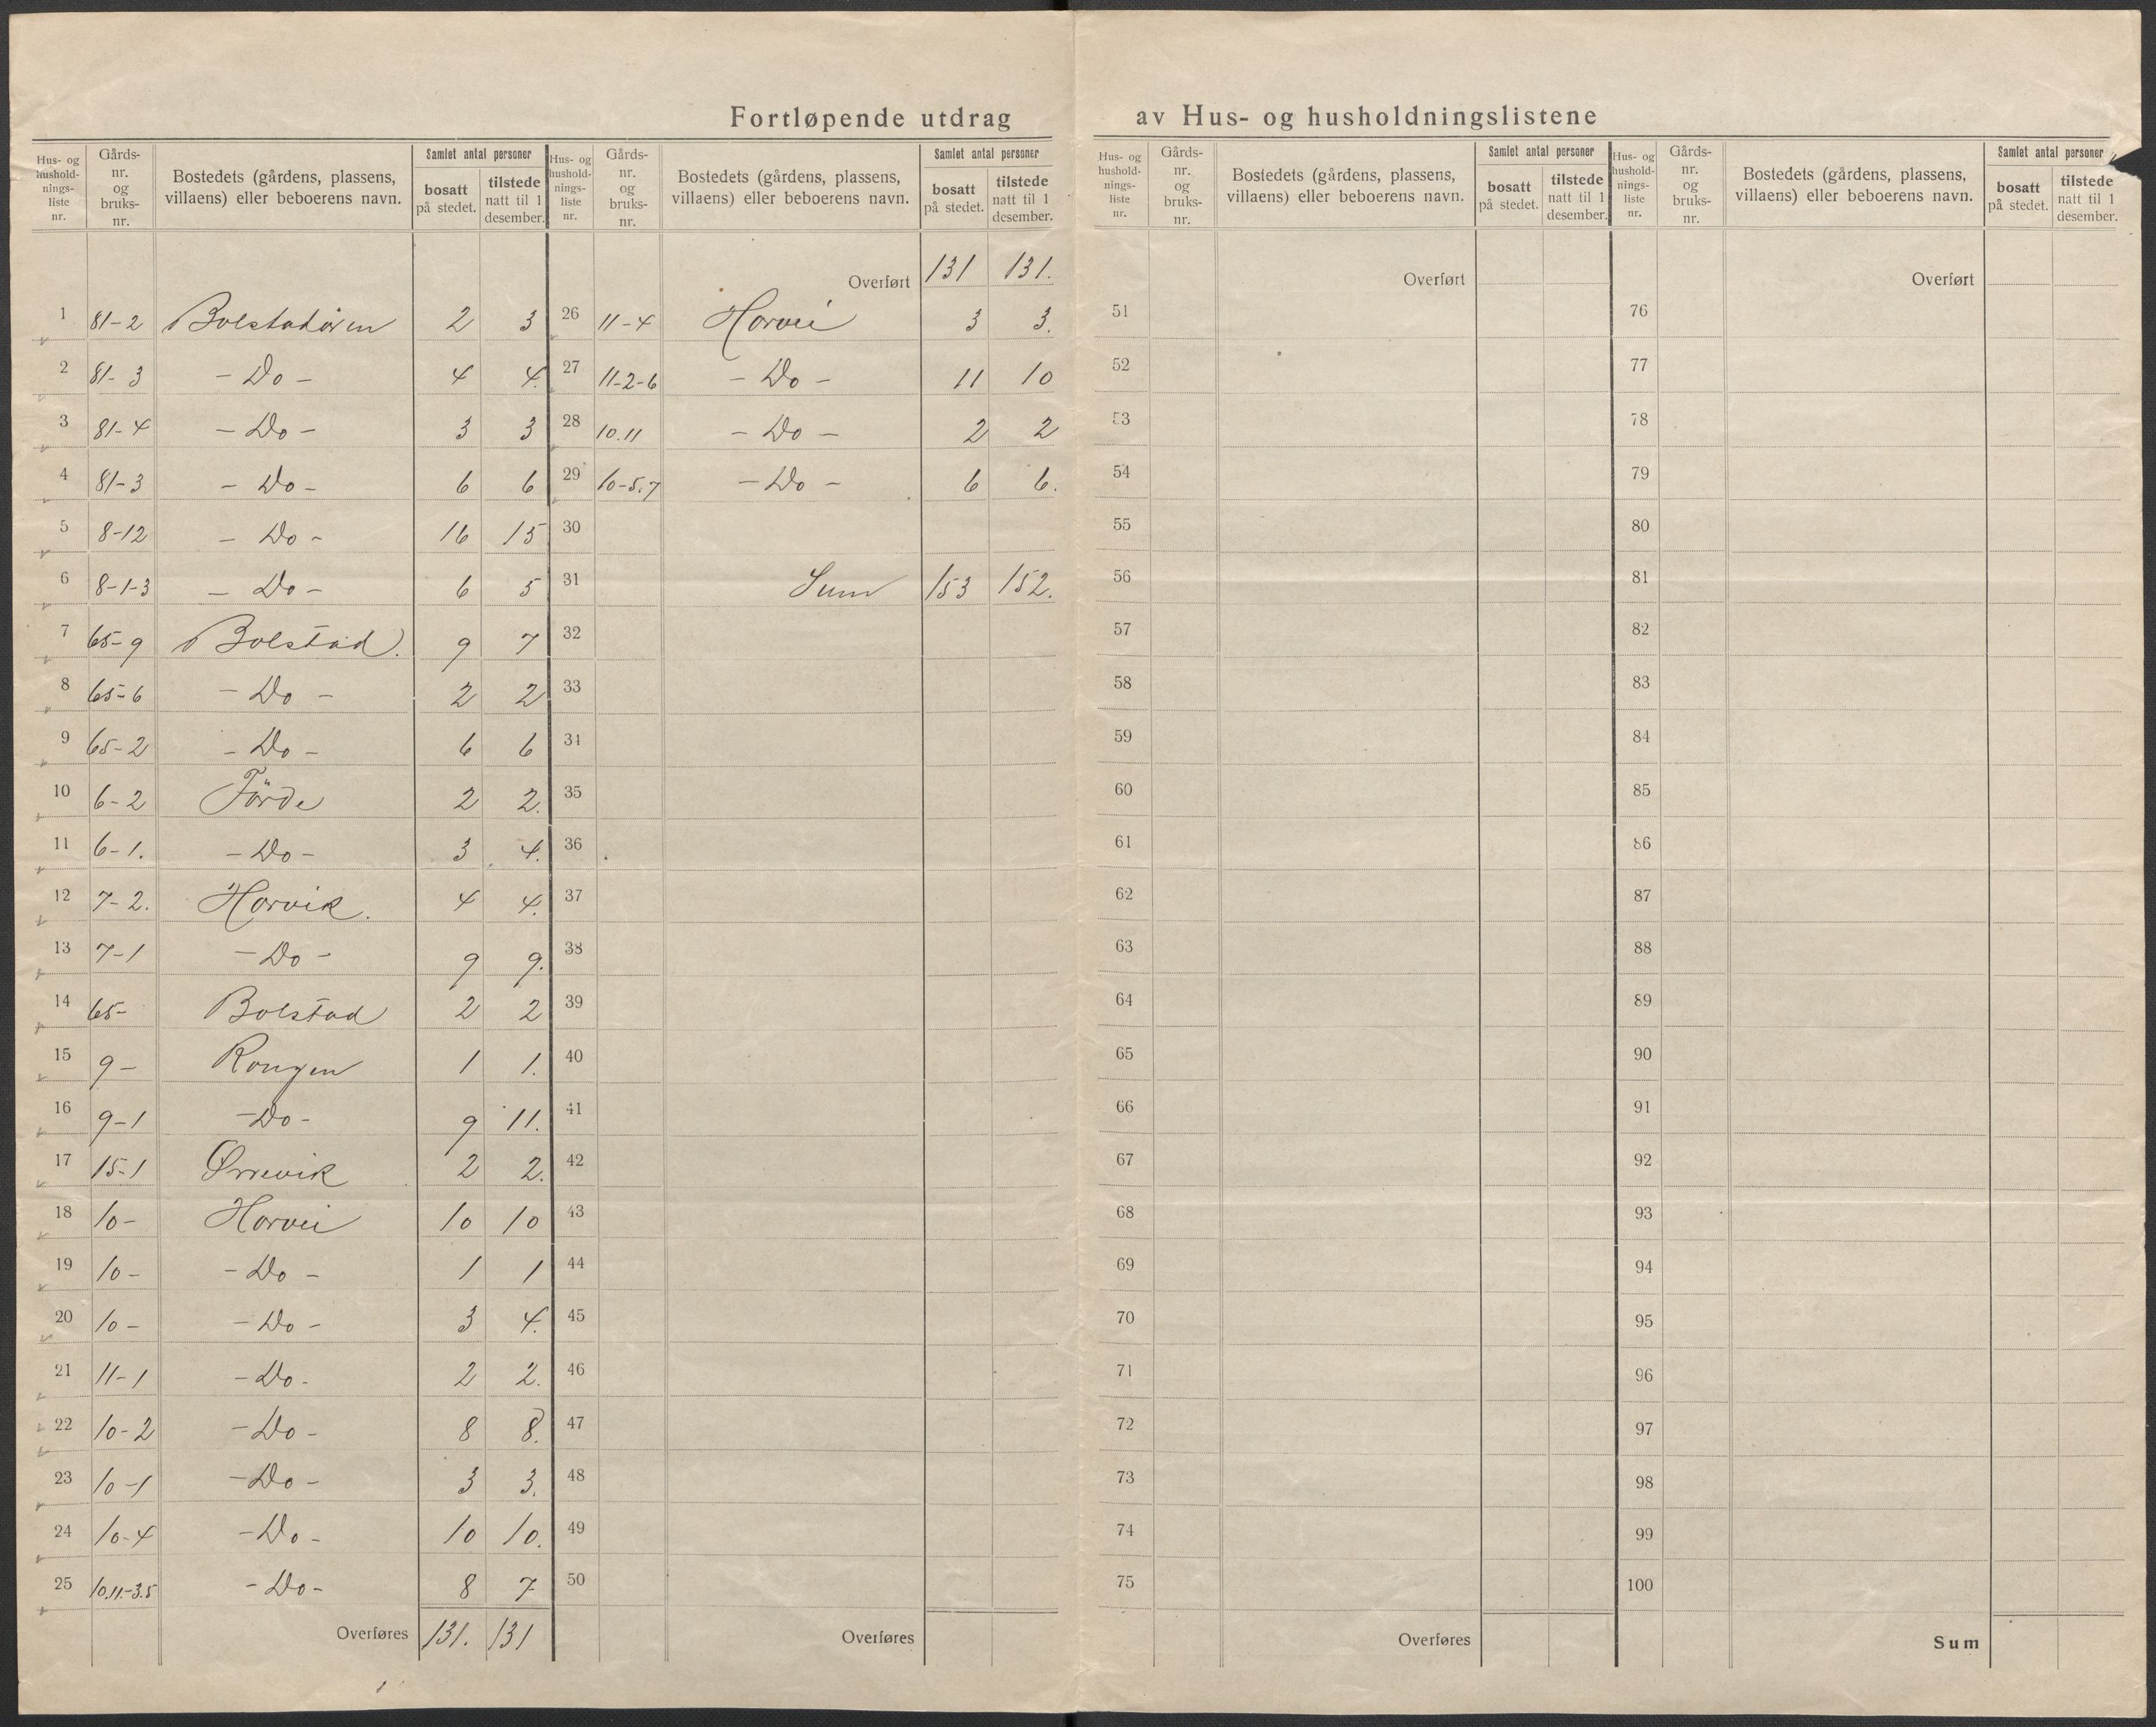 Fortløpende utdrag av Hus- og husholdningslistene
Hus- og hushold-nings-liste nr. | Gårds-nr. og bruks-nr. | Bostedets (gårdens, plassens, villaens) eller beboerens navn. | Samlet antal personer | bosatt på stedet. | tilstede natt til 1 desember.
1 81-2 Bolstadøren 2 3
2 81-3 -Do- 4 4.
3 81-4 -Do- 3 3
4 81-3 -Do- 6 6
5 8-12 -Do- 16 15
6 8-1-3 -Do- 6 5
7 65-9 Bolstad. 9 7
8 65-6 -Do- 2 2
9 65-2 -Do- 6 6
10 6-2 Förde 2 2.
11 6-1. -Do- 3 4.
12 7-2. Horvik. 4 4.
13 7-1 -Do- 9 9.
14 65- Bolstad 2 2
15 9- Rongen 1 1.
16 9-1 -Do- 9 11.
17 15-1 Ørrevik 2 2.
18 10- Horvei 10 10
19 10- -Do- 1 1
20 10- -Do- 3 4.
21 11-1 -Do- 2 2.
22 10-2 -Do- 8 8.
23 10-1 -Do- 3 3.
24 10-4 -Do- 10 10.
25 10.11-3.5 -Do- 8 7
Overføres 131. 131
Hus- og hushold-nings-liste nr. | Gårds-nr. og bruks-nr. | Bostedets (gårdens, plassens, villaens) eller beboerens navn. | Samlet antal personer | bosatt på stedet. | tilstede natt til 1 desember.
Overført 131 131.
26 11-4 Horvei 3 3.
27 11-2-6 -Do- 11 10
28 10.11 -Do- 2 2
29 10-5.7 -Do- 6 6.
30
31 Sum 153 152.
32
33
34
35
36
37
38
39
40
41
42
43
44
45
46
47
48
49
50
Overføres
Hus- og hushold-nings-liste nr. | Gårds-nr. og bruks-nr. | Bostedets (gårdens, plassens, villaens) eller beboerens navn. | Samlet antal personer | bosatt på stedet. | tilstede natt til 1 desember.
Overført
51
52
53
54
55
56
57
58
59
60
61
62
63
64
65
66
67
68
69
70
71
72
73
74
75
Overføres
Hus- og hushold-nings-liste nr. | Gårds-nr. og bruks-nr. | Bostedets (gårdens, plassens, villaens) eller beboerens navn. | Samlet antal personer | bosatt på stedet. | tilstede natt til 1 desember.
Overført
76
77
78
79
80
81
82
83
84
85
86
87
88
89
90
91
92
93
94
95
96
97
98
99
100
Sum